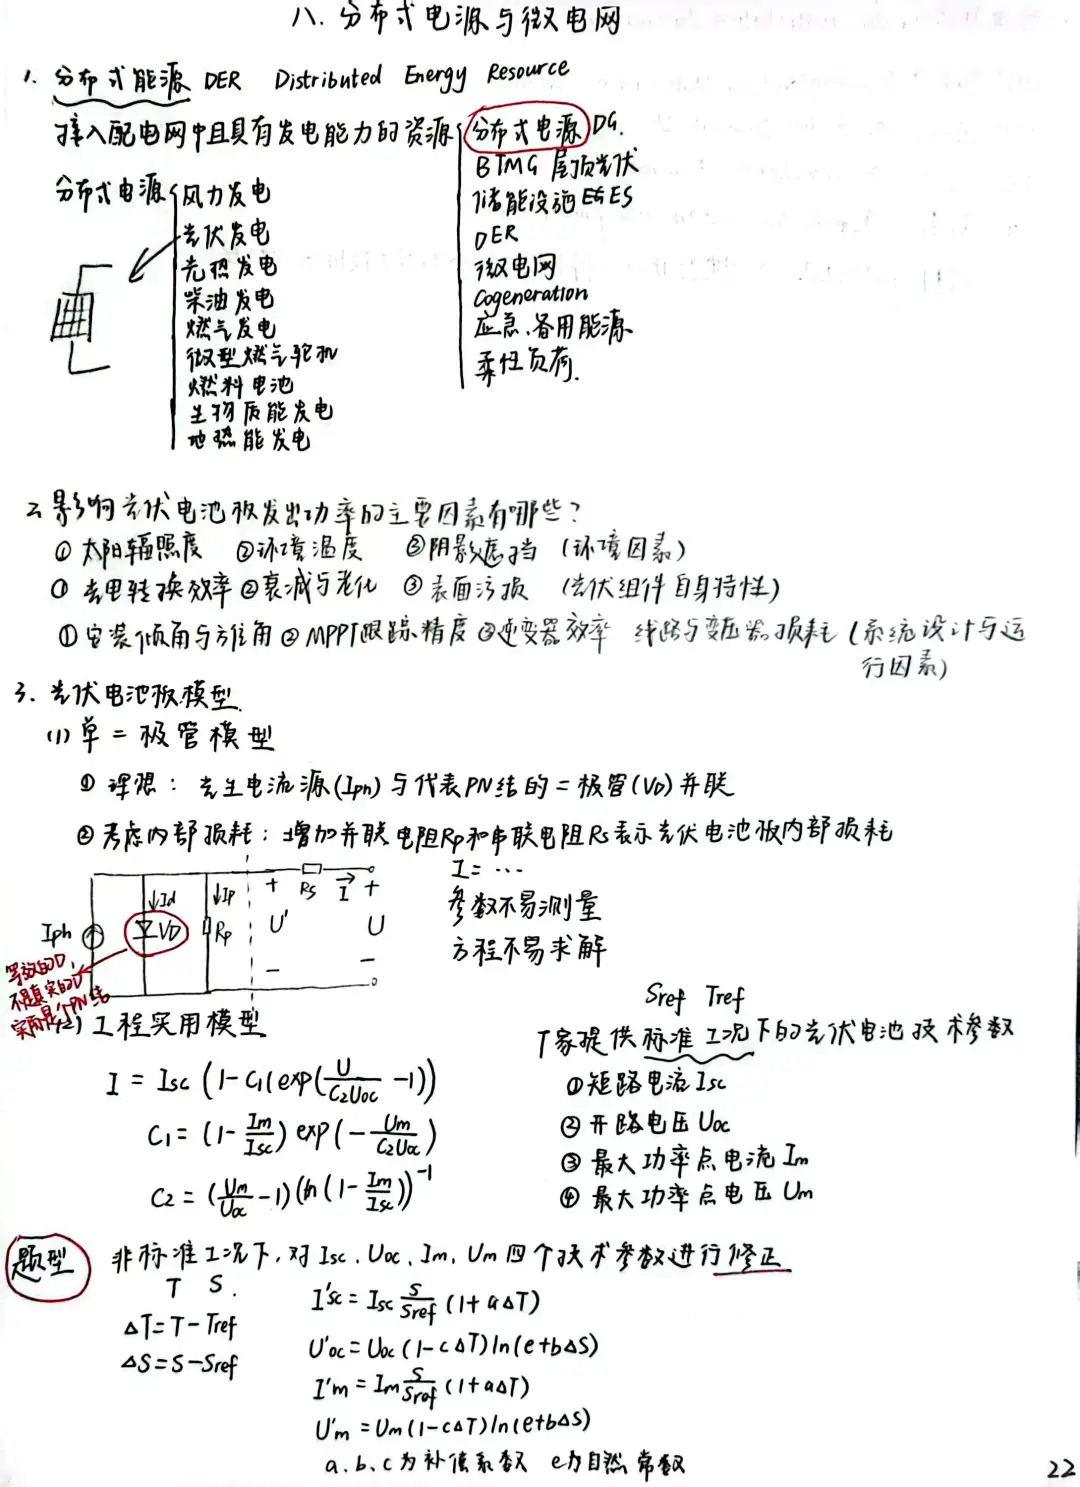 八.分布式电源与微电网
1. 分布式能源 DER Distributed Energy Resource
接入配电网中且具有发电能力的资源
分布式电源 DG.
BTMG 屋顶光伏
储能设施 EGES
DER
微电网
Cogeneration
应急、备用能源
柔性负荷.
分布式电源
风力发电
光伏发电
光热发电
柴油发电
燃气发电
微型燃气轮机
燃料电池
生物质能发电
地热能发电
2. 影响光伏电池板发出功率的主要因素有哪些?
① 太阳辐照度 ②环境温度 ③阴影遮挡 (环境因素)
① 光电转换效率 ②衰减与老化 ③表面污损 (光伏组件自身特性)
①安装倾角与方位角 ② MPPT跟踪精度 ③逆变器效率 线路与变压器损耗 (系统设计与运
行因素)
3. 光伏电池板模型.
(1) 单二极管模型
① 理想: 光生电流源(Iph)与代表PN结的二极管(VD)并联
② 考虑内部损耗: 增加并联电阻Rp和串联电阻Rs表示光伏电池板内部损耗
Iph Id VD Ip Rp + U' − Rs I + U −
等效的D,
不是真实的D
实际是个PN结
I = ...
参数不易测量
方程不易求解
(2) 工程实用模型
I = Isc (1-C1(exp(U/C2Uoc -1))
C1 = (1- Im/Isc) exp(- Um/C2Uoc)
C2 = (Um/Uoc -1)(ln(1- Im/Isc))^-1
Sref Tref
厂家提供标准工况下的光伏电池技术参数
①短路电流 Isc
②开路电压 Uoc
③最大功率点电流 Im
④最大功率点电压 Um
题型
非标准工况下,对 Isc、Uoc、Im、Um 四个技术参数进行修正
T S.
ΔT=T-Tref
ΔS=S-Sref
I'sc = Isc S/Sref (1+aΔT)
U'oc = Uoc (1-cΔT)ln(e+bΔS)
I'm = Im S/Sref (1+aΔT)
U'm = Um(1-cΔT)ln(e+bΔS)
a、b、c为补偿系数 e为自然常数
22